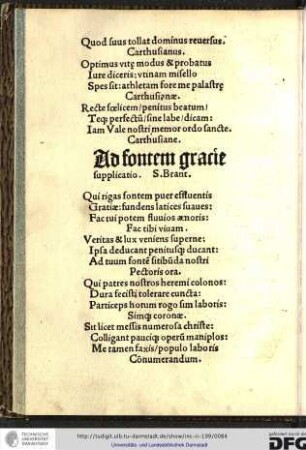 Quod suus tollat dominus reuersus.
Carthusianus.
Optimus vitę modus & probatus
Iure diceris: vtinam misello
Spes sit: athletam fore me palastrę
Carthusianæ.
Recte fœlicem/penitus beatum/
Teq; perfectũ/sine labe/dicam:
Iam Vale nostri memor ordo sancte.
Carthusiane.
Ad fontem gracie
supplicatio. S. Brant.
Qui rigas fontem puer effluentis
Gratiæ: fundens latices suaues:
Fac tui potem fluuios amoris:
Fac tibi viuam.
Veritas & lux veniens superne:
Ipsa deducant penitusq; ducant:
Ad tuum fontẽ sitibũda nostri
Pectoris ora.
Qui patres nostros heremi colonos:
Dura fecisti tolerare cuncta:
Particeps horum rogo sim laboris:
Simq; coronæ.
Sit licet messis numerosa christe:
Colligant pauciq; operũ maniplos:
Me tamen faxis/populo laboris
Cõnumerandum.
TECHNISCHE
UNIVERSITÄT
DARMSTADT
http://tudigit.ulb.tu-darmstadt.de/show/inc-iv-199/0084
Universitäts- und Landesbibliothek Darmstadt
DFG